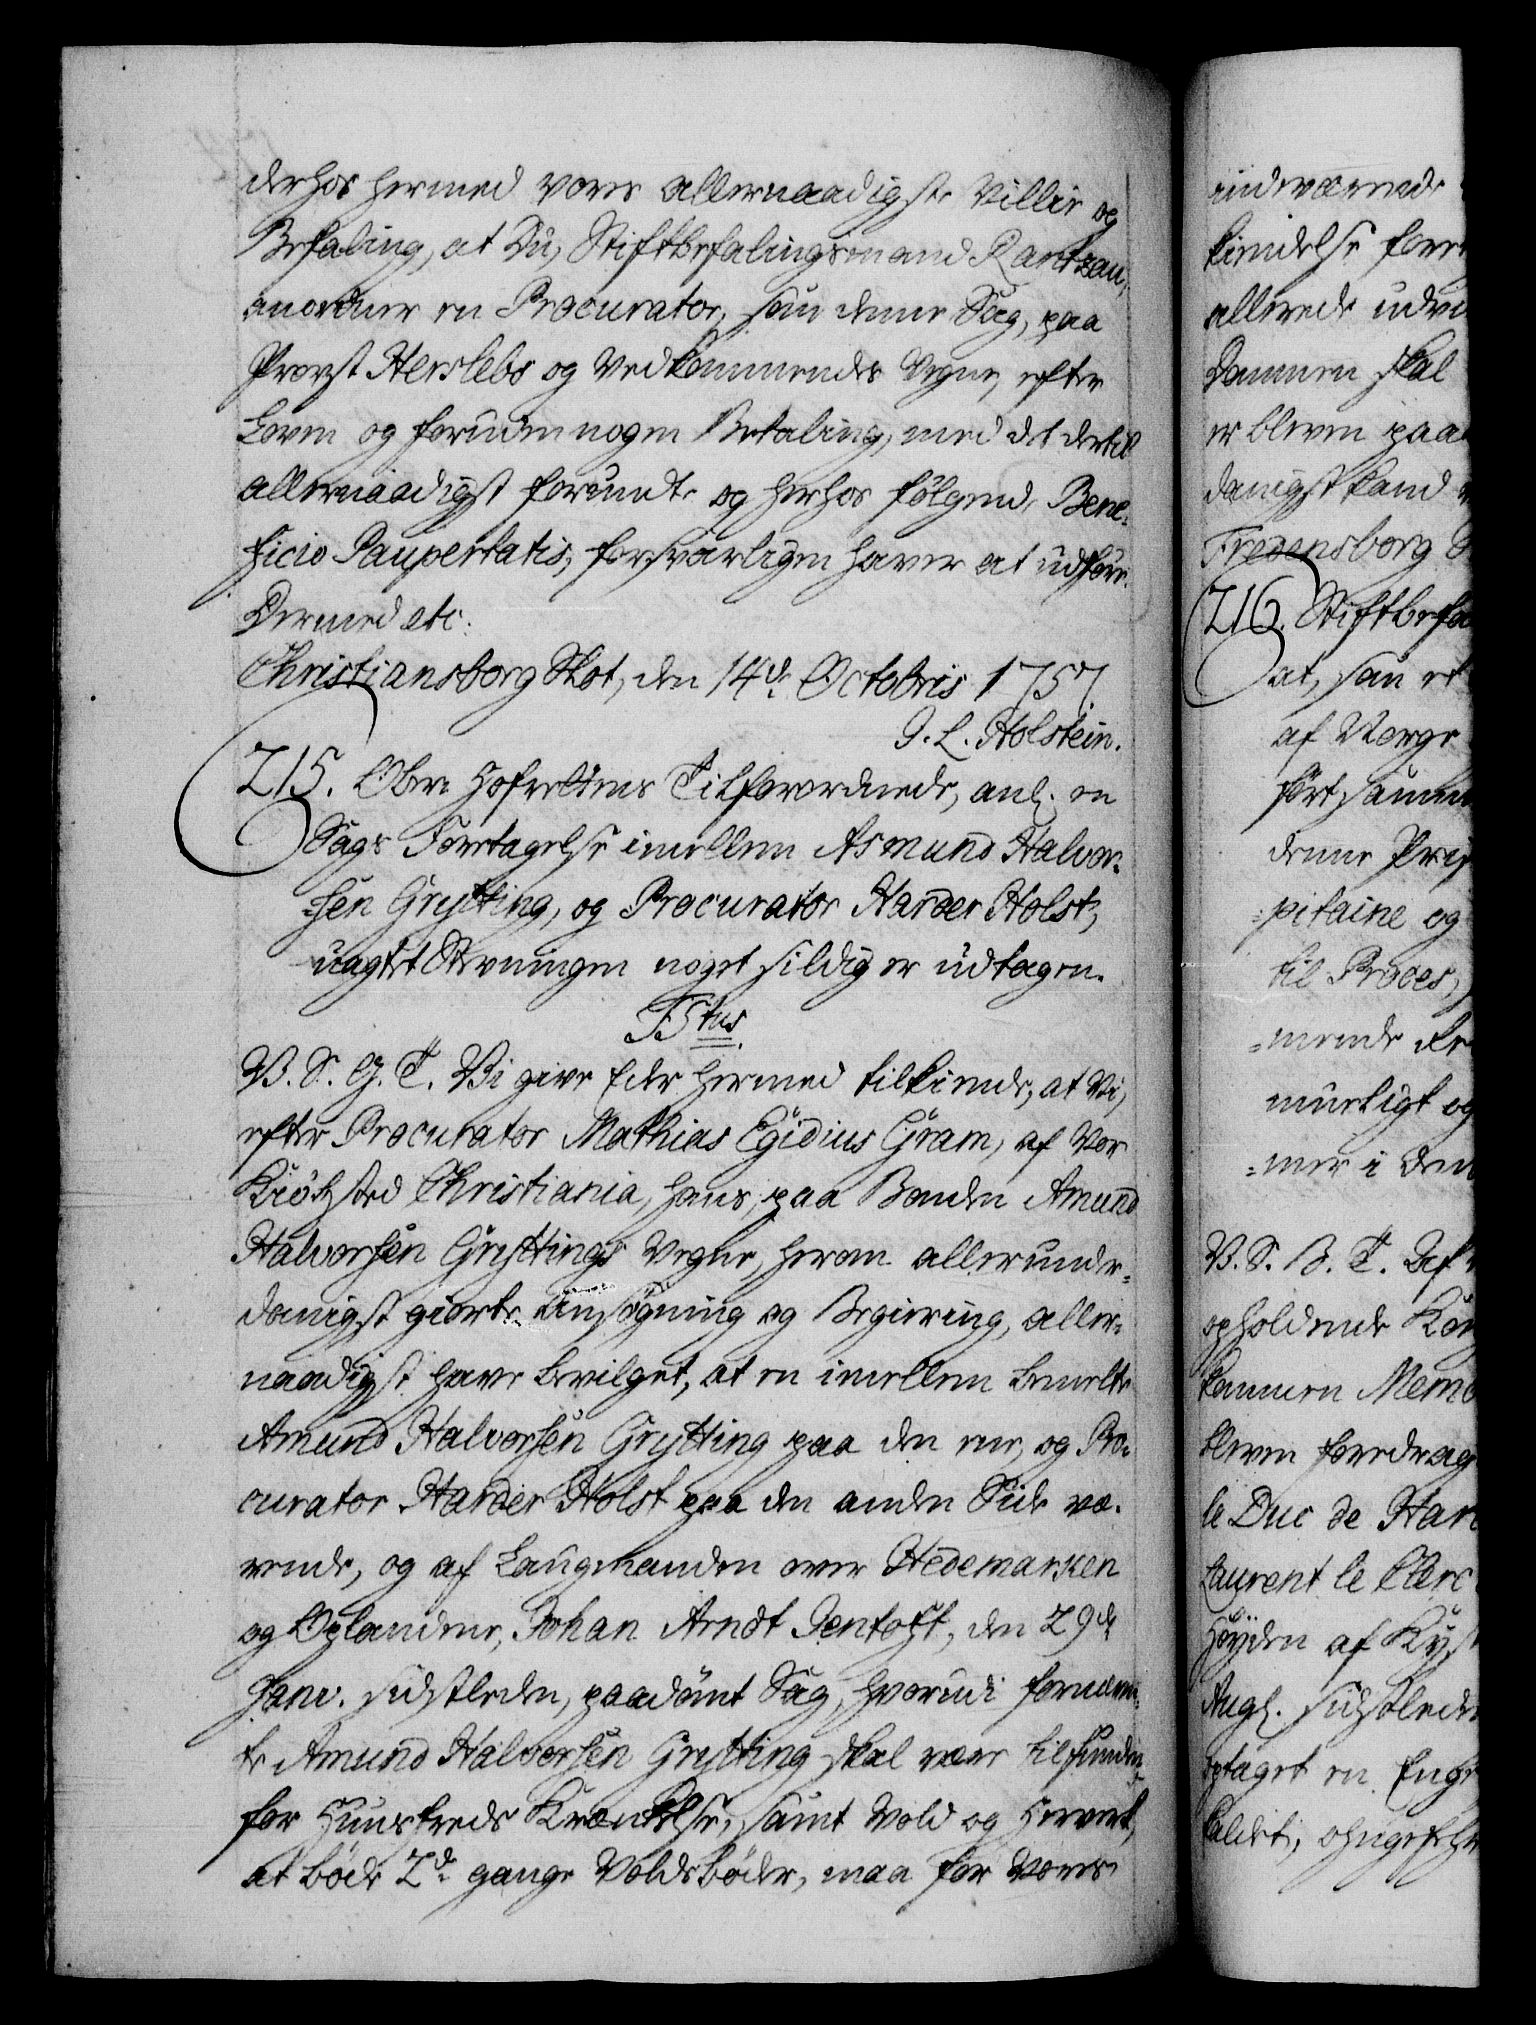 derhos hermed vores allernaadigste Villie og
Befaling, at Du, Stiftbefalingsmand Rantzau,
anordner en Procurator, som denne Sag, paa
Provst Herslebs og Vedkommendes Vegne, efter
Loven og foruden nogen Betaling, med det dertil
allernaadigst forundte og herhos følgende Bene-
ficio Paupertatis, forsvarligen haver at udføre.
Dermed etc:
Christiansborg Slot, den 14de Octobris 1757.
J. L. Holstein.
215. Ober-Hofrettens Tilforordnede, anl. en
Sags Foretagelse imellem Asmund Halvor-
sen Grytting, og Procurator Harder Holst,
uagtet Stevningen noget sildig er udtagen.
F5tus
V. S. G. T. Vi give Eder hermed tilkiende, at Vi,
efter Procurator Mathias Egidius Gram, af Vor
Kiøbsted Christiania, hans, paa Bonden Amund
Halvorsen Gryttings Vegne, herom allerunder-
danigst giorte Ansøgning og Begiering, aller-
naadigst have bevilget, at en imellem bemelte
Amund Halvorsen Grytting paa den ene, og Pro-
curator Harder Holst paa den anden Side væ-
rende, og af Laugmanden over Hedemarken
og Oplandene, Johan Arndt Gentoft, den 29de
Janv. sidstleden, paadømt Sag, hvorudi fornevn-
te Amund Halvorsen Grytting skal være tilfunden
for Huusfreds Krænkelse, samt Vold og Hervert,
at bøde 2de gange Voldsbøder, maa for Vores
indeværende
kiendelse fore
allerede udvi
Dommen skal
er bleven paa
danigst kand
Fredensborg
216. Stiftbefa
at, som et
af Norge
ført samme
denne Pris
=pitaine og
til Proces,
=mende
murligt og
=mer i den
V. S. G. T. Af
opholdende Kon
kommen Memo
bleven foredrag
le Duc de Har
Laurent le Clerc
Høyden af Kys
Aug. sidstleden
optaget en Eng
kaldet, ohngefehr